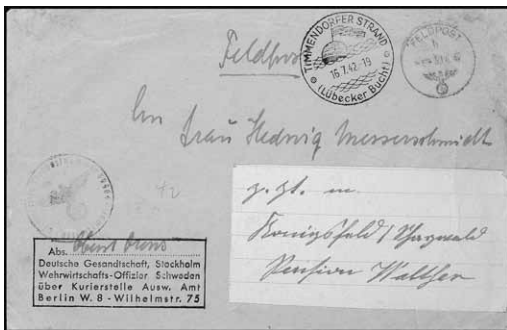 Feldpost
TIMMENDORFER STRAND
16.7.42-19
(Lübecker Bucht)
FELDPOST
b
An
Frau Hedwig Messerschmidt
z. Zt. in
Königsfeld / Schwarzwald
Pension Walther
42
Abs.
Deutsche Gesandtschaft, Stockholm
Wehrwirtschafts-Offizier Schweden
über Kurierstelle Ausw. Amt
Berlin W. 8 - Wilhelmstr. 75